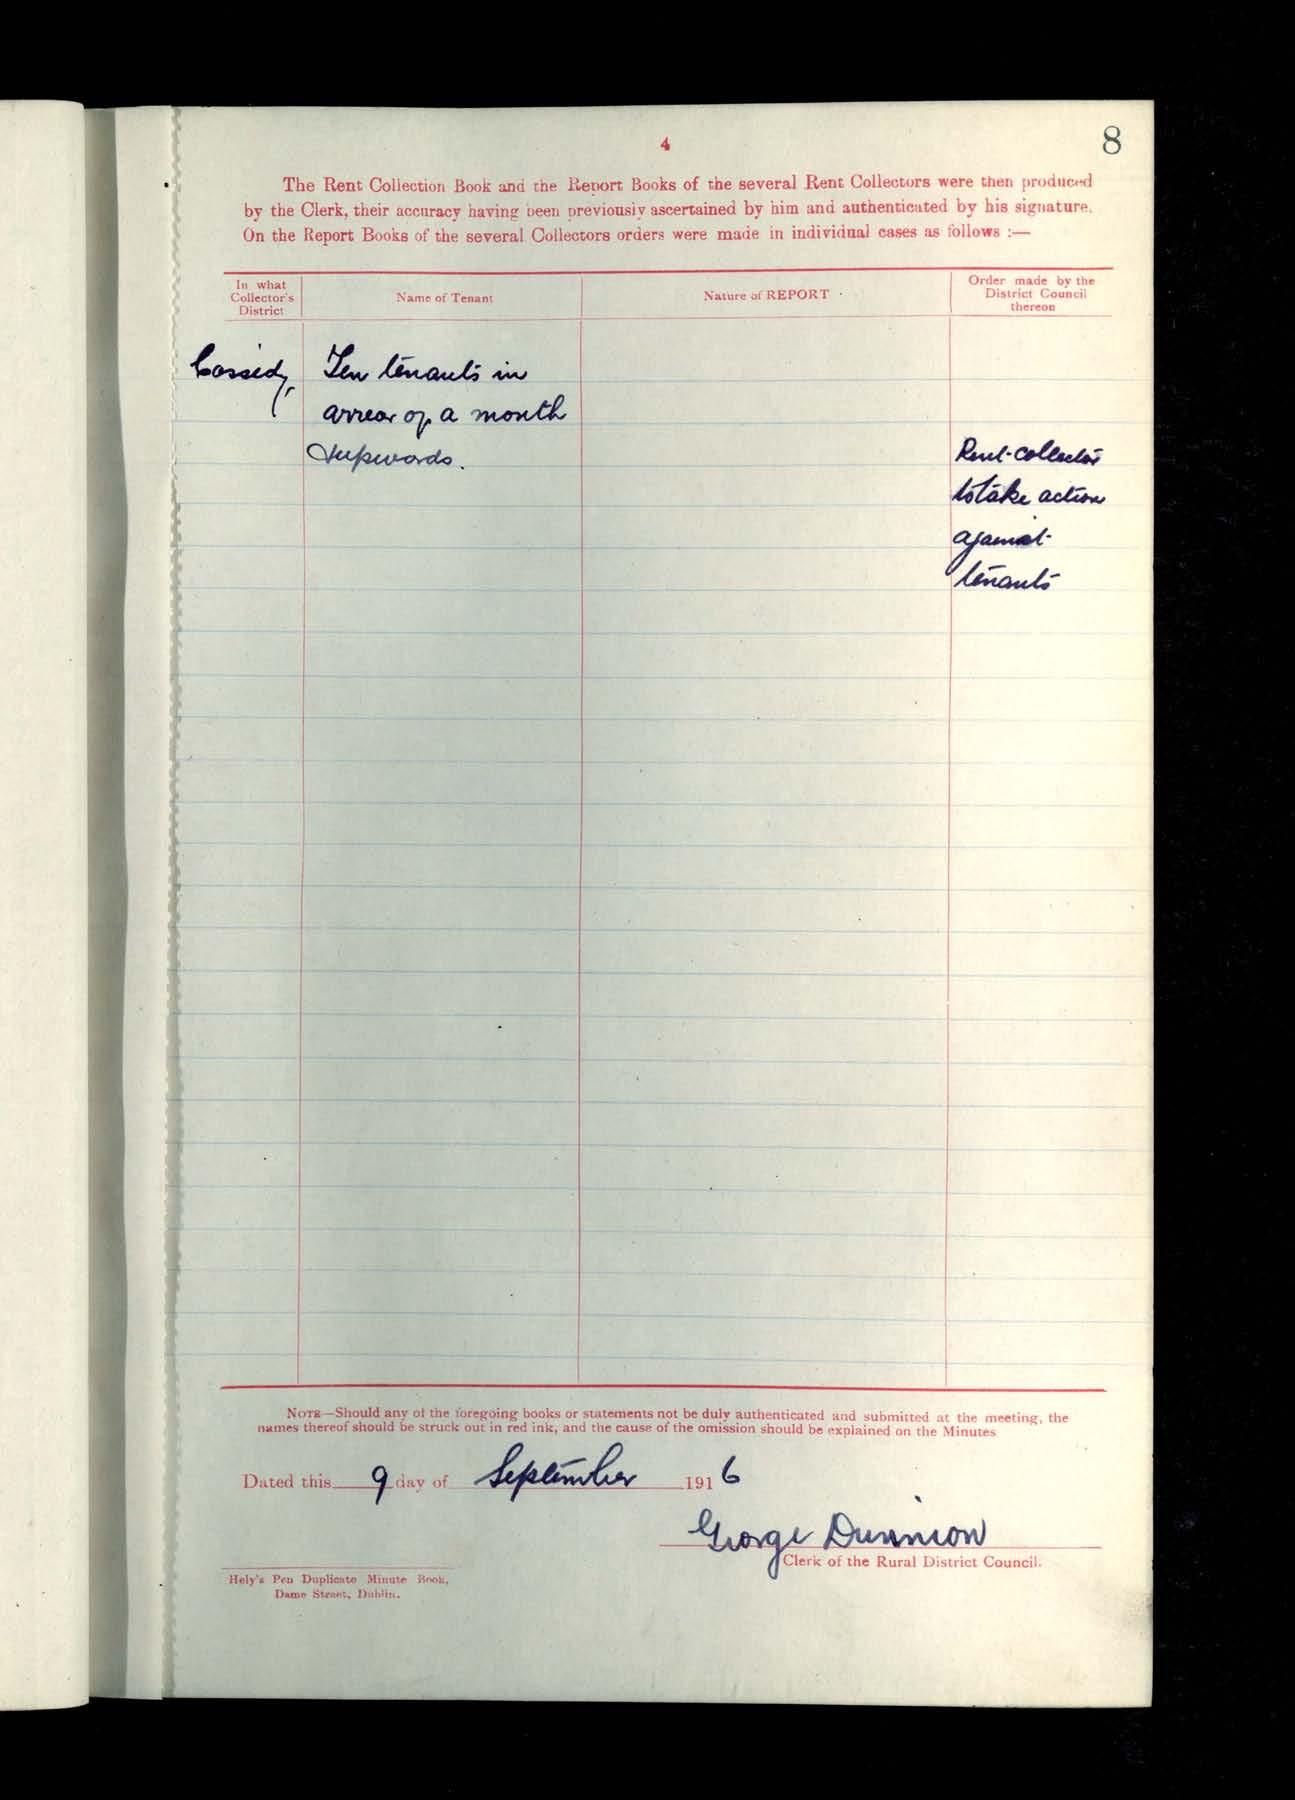 4
8
The Rent Collection Book and the Report Books of the several Rent Collectors were then produced
by the Clerk, their accuracy having been previously ascertained by him and authenticated by his signature.
On the Report Books of the several Collectors orders were made in individual cases as follows :—
In what
Collector's
District
Name of Tenant
Nature of REPORT
Order made by the
District Council
thereon
Cassidy,
Ten tenants in
arrear of a month
& upwards.
Rent-collector
to take action
against
tenants
NOTE—Should any of the foregoing books or statements not be duly authenticated and submitted at the meeting, the
names thereof should be struck out in red ink, and the cause of the omission should be explained on the Minutes
Dated this 9 day of September 1916
George Dunnion
Clerk of the Rural District Council.
Hely's Pen Duplicate Minute Book,
Dame Street, Dublin.